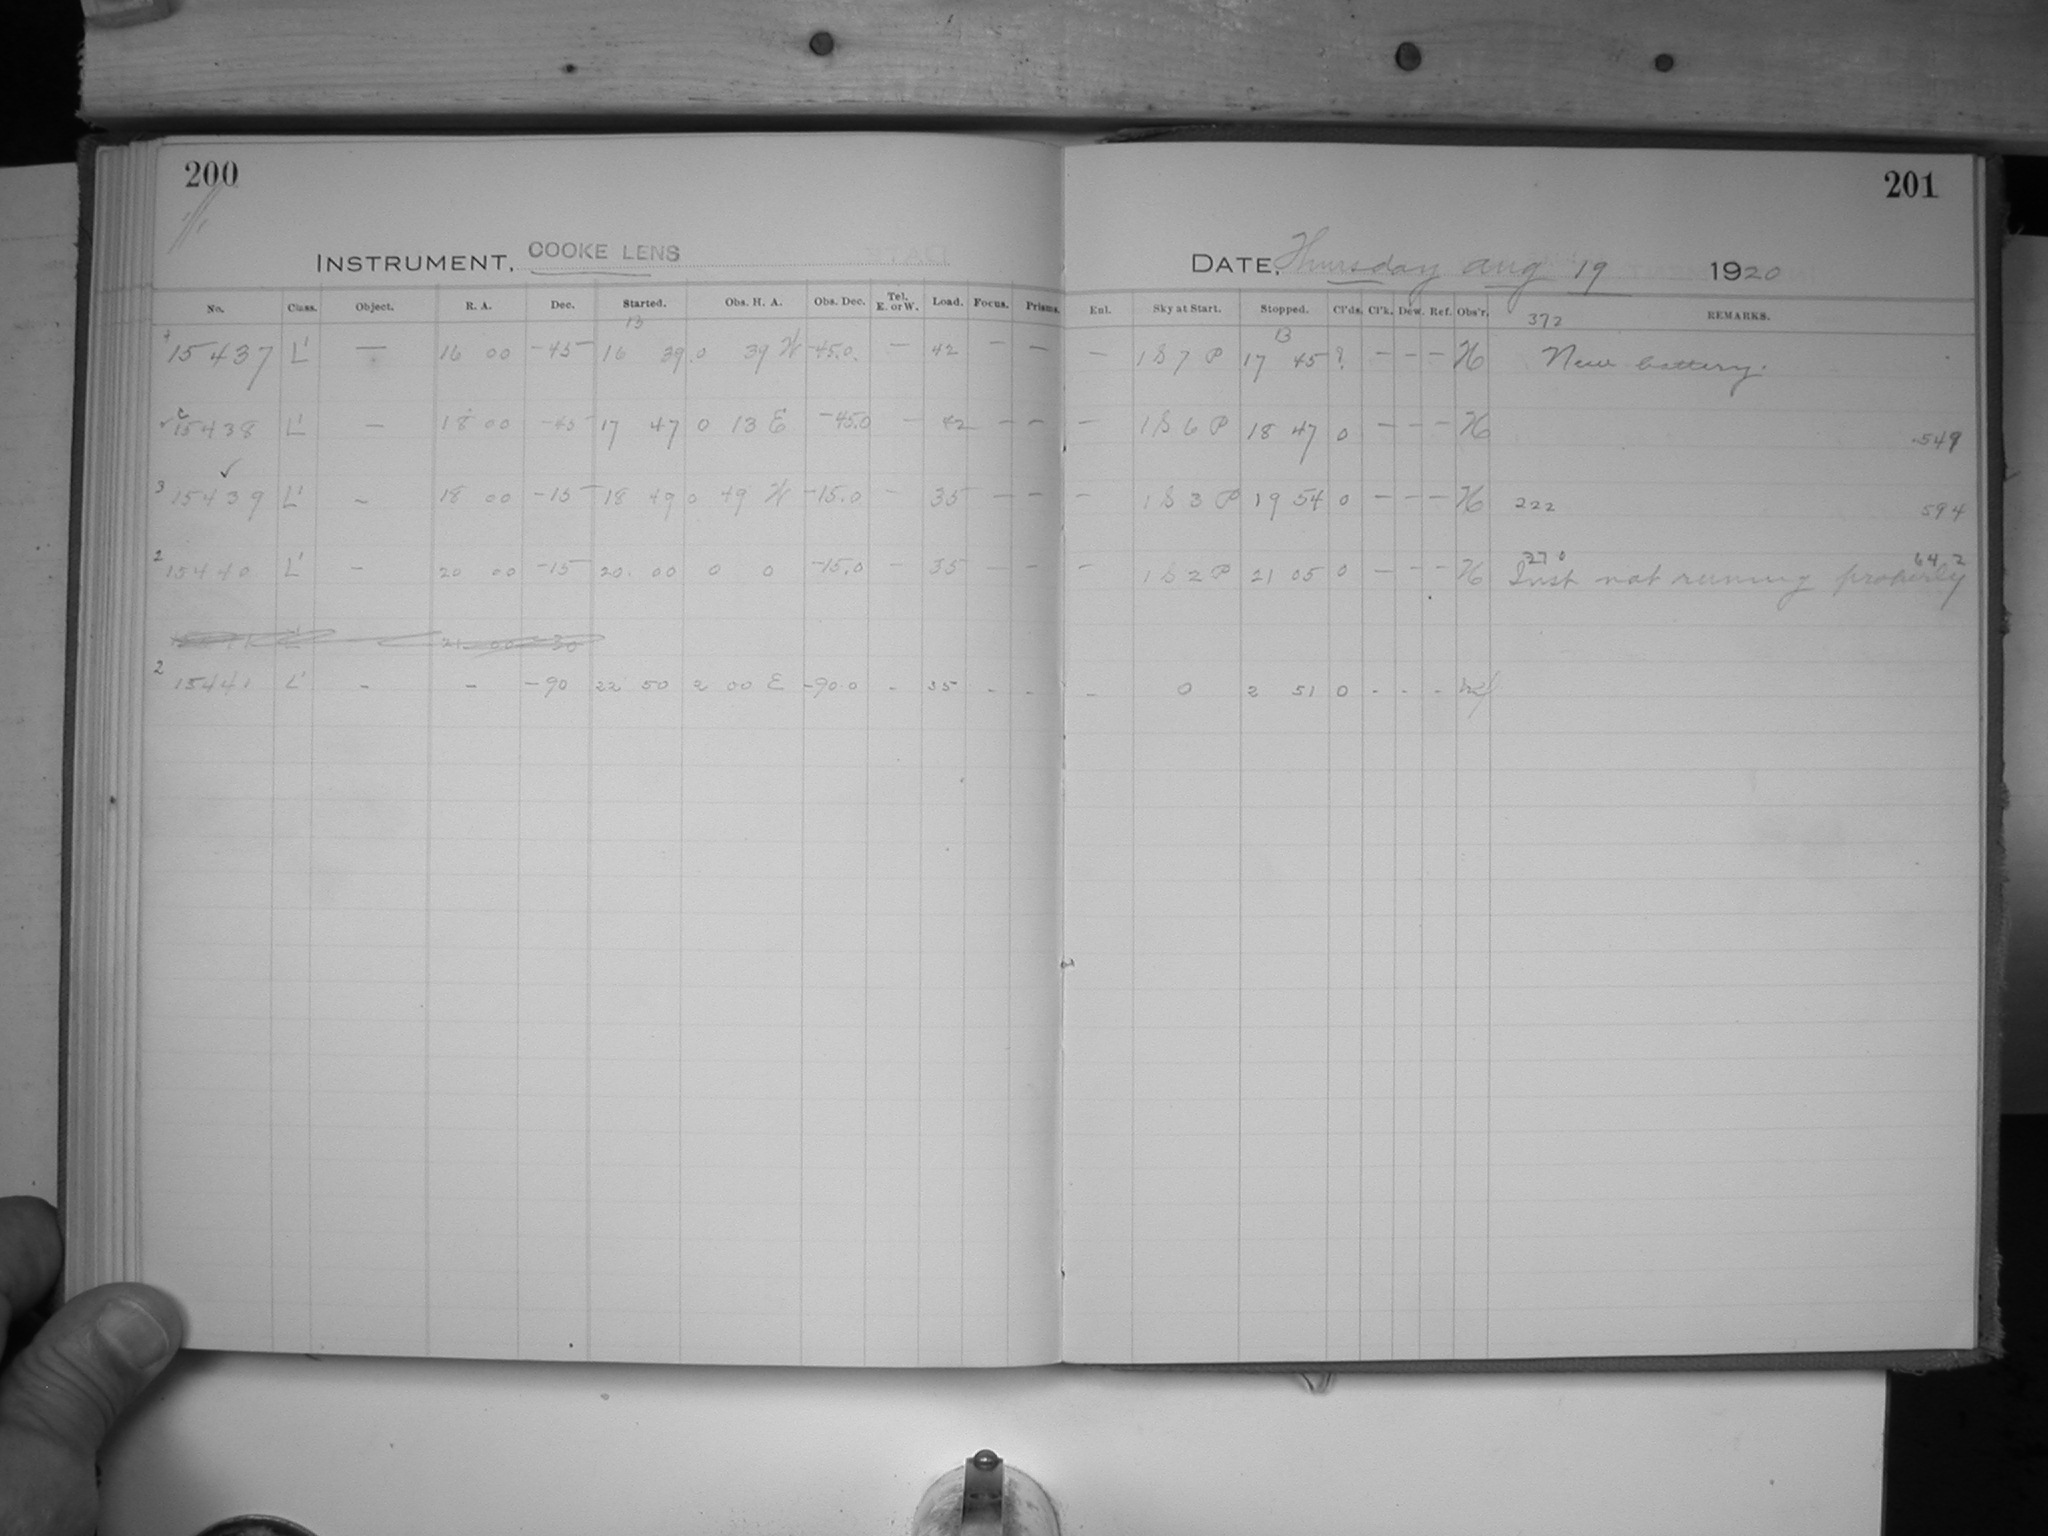 200
201
INSTRUMENT, COOKE LENS
DATE, Thursday Aug 19 1920
No. Class. Object. R. A. Dec. Started. Obs. H. A. Obs. Dec. Tel. E. or W. Load. Focus. Prisms. Enl. Sky at Start. Stopped. Cl'ds. Cl'k. Dew. Ref. Obs'r. REMARKS.
13 13 372
15437 L' — 16 00 -45 16 39 0 39 W -45.0 — 42 — — — 1S7P 17 45 ? — — — H New battery.
15438 L' — 18 00 -45 17 47 0 13 E -45.0 — 42 — — — 1S6P 18 47 0 — — — H .549
3 15439 L' — 18 00 -15 18 49 0 49 W -15.0 — 35 — — — 1S3P 19 54 0 — — — H 222 594
270 642
2 15440 L' — 20 00 -15 20 00 0 0 -15.0 — 35 — — — 1S2P 21 05 0 — — — H Inst not running properly
21 00 -30
2 15441 L' - - -90 22 50 2 00 E -90.0 - 35 - - - 0 2 51 0 - - -